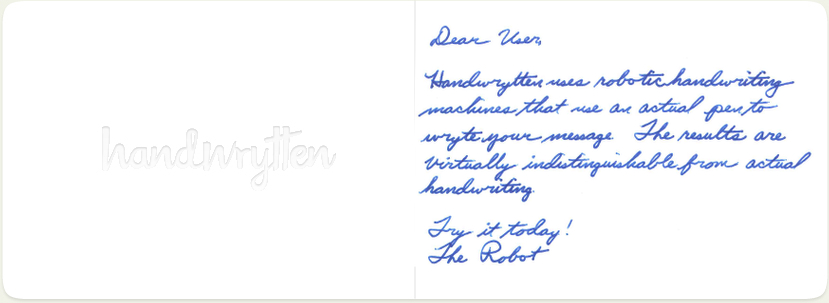 handwrytten
Dear User,
Handwrytten uses robotic handwriting
machines that use an actual pen to
wryte your message. The results are
virtually indistinguishable from actual
handwriting.
Try it today!
The Robot